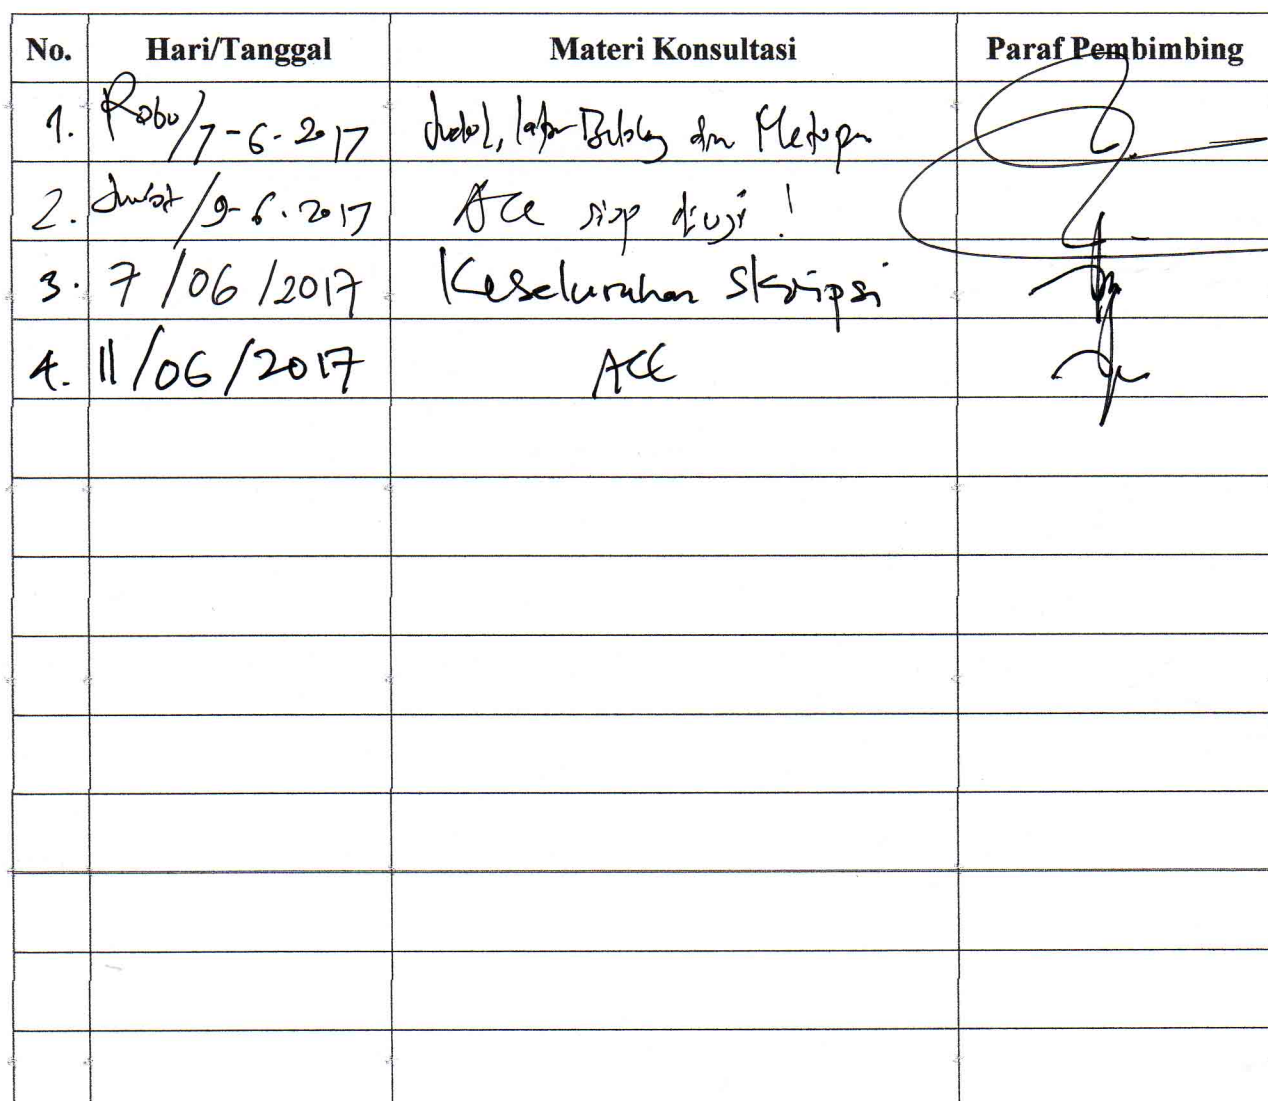 No. Hari/Tanggal Materi Konsultasi Paraf Pembimbing
1. Rabu/7-6-2017 Judul, latar Belakang dan Metopen
2. Jumat/9-6-2017 ACC siap diuji!
3. 7/06/2017 Keseluruhan Skripsi
4. 11/06/2017 ACC